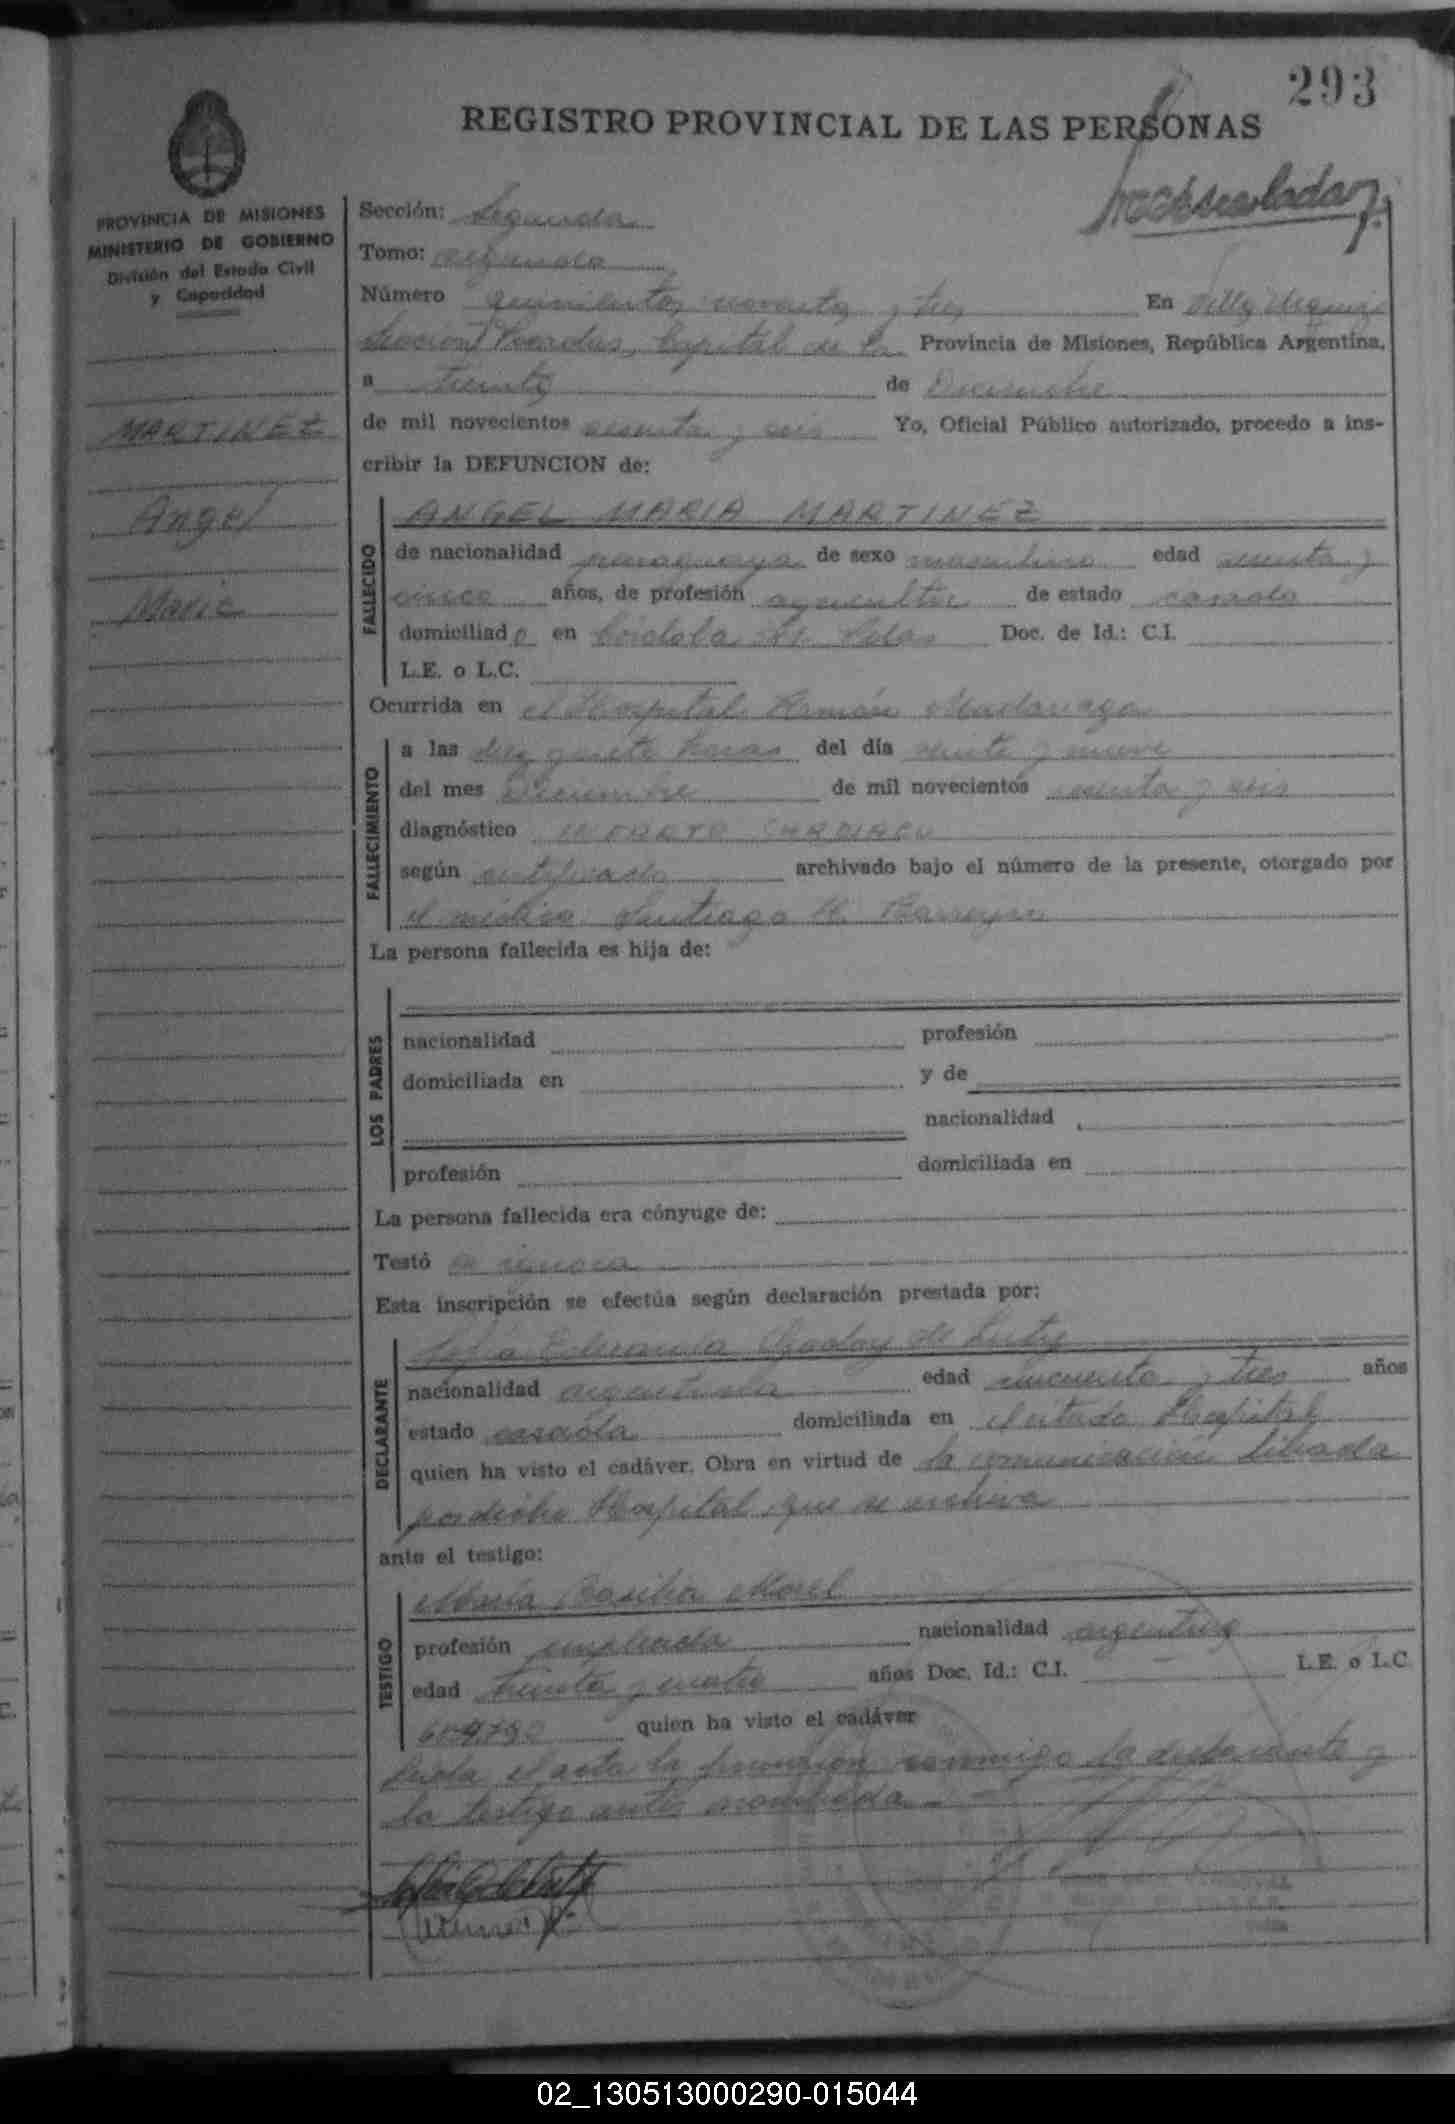 293
REGISTRO PROVINCIAL DE LAS PERSONAS
PROVINCIA DE MISIONES
MINISTERIO DE GOBIERNO
División del Estado Civil
y Capacidad
MARTINEZ
Angel
Maria
Sección: Segunda
Tomo: segundo
Número quinientos noventa y tres En Villa Urquiza
Sección Posadas, Capital de la Provincia de Misiones, República Argentina,
a treinta de Diciembre
de mil novecientos sesenta y seis Yo, Oficial Público autorizado, procedo a ins-
cribir la DEFUNCION de:
FALLECIDO
ANGEL MARIA MARTINEZ
de nacionalidad paraguaya de sexo masculino edad sesenta y
cinco años, de profesión agricultor de estado casado
domiciliado en Córdoba Doc. de Id.: C.I.
L.E. o L.C.
Ocurrida en el Hospital Ramón Madariaga
FALLECIMIENTO
a las diez y siete horas del día veinte y nueve
del mes Diciembre de mil novecientos sesenta y seis
diagnóstico INFARTO CARDIACO
según certificado archivado bajo el número de la presente, otorgado por
el médico Santiago H. Barreyro
La persona fallecida es hija de:
LOS PADRES
nacionalidad profesión
domiciliada en y de
nacionalidad
profesión domiciliada en
La persona fallecida era cónyuge de:
Testó se ignora
Esta inscripción se efectúa según declaración prestada por:
DECLARANTE
Sofía Godoy de Luty
nacionalidad argentina edad cincuenta y tres años
estado casada domiciliada en el citado Hospital
quien ha visto el cadáver. Obra en virtud de la comunicación librada
por dicho Hospital que se archiva
ante el testigo:
TESTIGO
María Basilia Morel
profesión empleada nacionalidad argentina
edad treinta y cuatro años Doc. Id.: C.I. L.E. o L.C.
quien ha visto el cadáver
Leída el acta la firman conmigo la declarante y
la testigo antes nombrada.
02_130513000290-015044